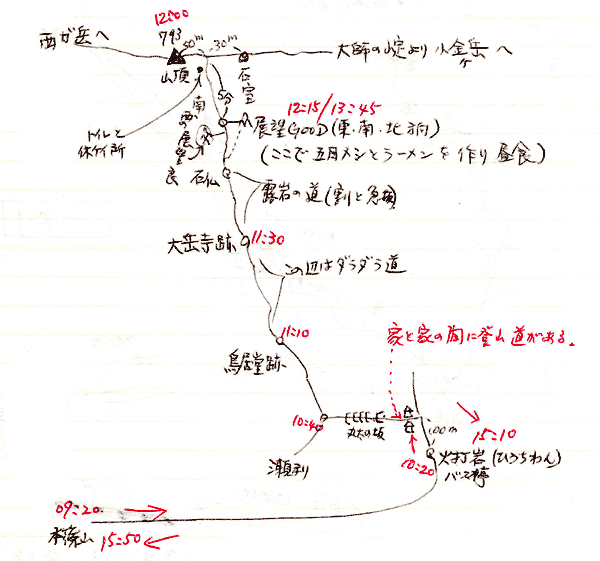 12:00
793
西が岳へ
50m
30m
大師の山定より 小金ヶ岳へ
山頂
石室
5分
12:15/13:45
南
西の展望良
展望GOOD(東・南・北 3方)
トイレと
休ケイ所
(ここで五目メシとラーメンを作り昼食)
石仏
露岩の道(割と急損)
大岳寺跡
11:30
この辺はダラダラ道
11:10
鳥居堂跡
家と家の間に登山道がある。
10:40
丸太の坂
100m
15:10
瀬利
10:20
火打岩(ひうちわん)
バス停
09:20
本篠山
15:50